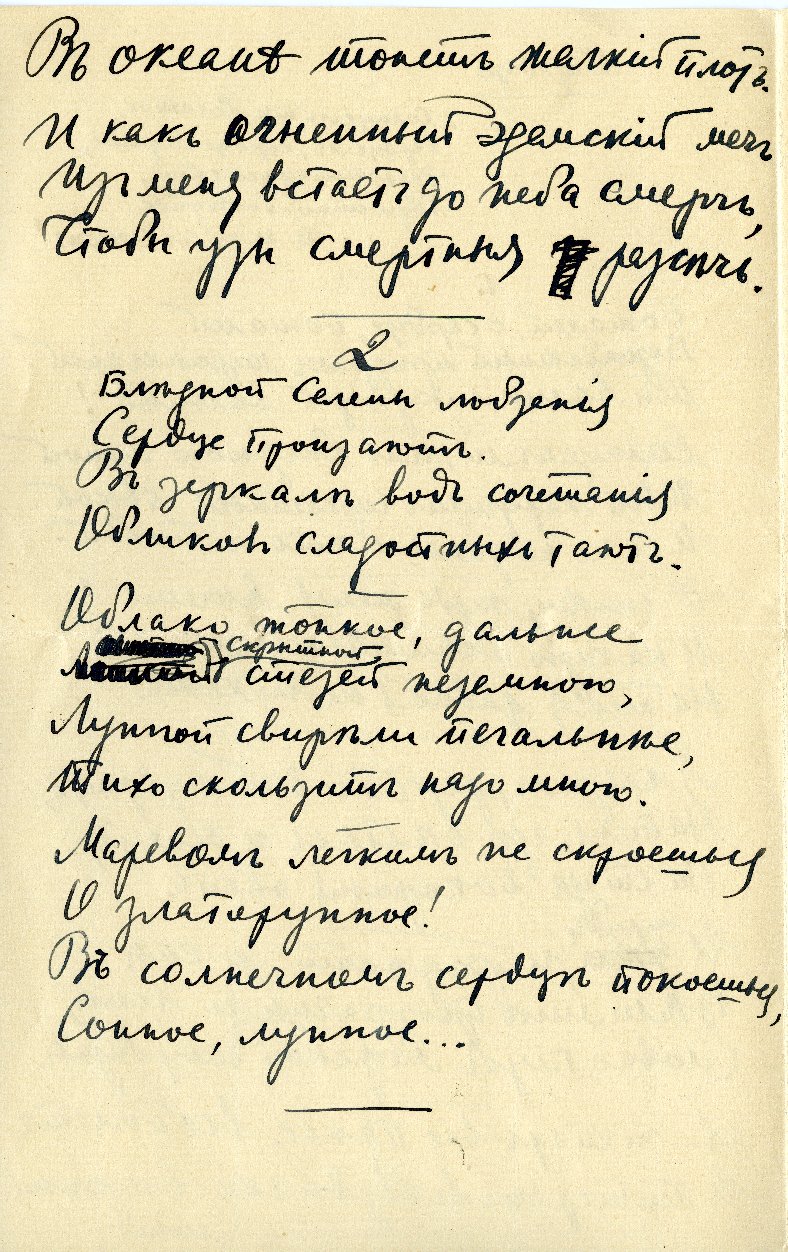 Въ океанѣ тонетъ жалкій плотъ.
И какъ огненный эдемскій мечъ
Изъ меня встаетъ до неба смерчъ,
Чтобы узы смертныя разсѣчь.
2
Блѣдной Селены лобзанія
Сердце пронзаютъ.
Въ зеркалѣ водъ сочетанія
Обликовъ сладостныхъ таютъ.
Облако тонкое, дальнее
скрытной,
стезей неземною,
Лунной свирѣли печальнѣе,
Тихо скользитъ надо мною.
Маревомъ легкимъ не скроешься
О златорунное!
Въ солнечномъ сердцѣ покоешься,
Сонное, лунное...